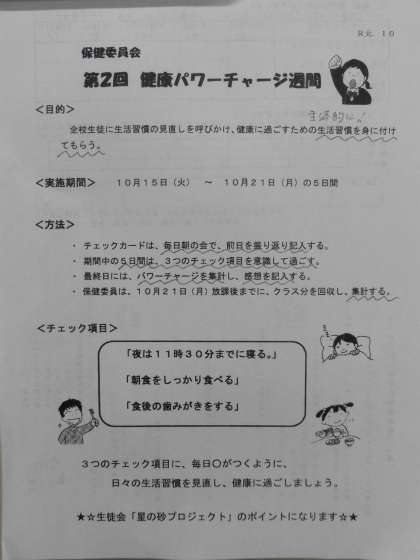 R元. 10
保健委員会
第2回 健康パワーチャージ週間
主体的に!
<目的>
全校生徒に生活習慣の見直しを呼びかけ、健康に過ごすための生活習慣を身に付け
てもらう。
<実施期間> 10月15日(火) ~ 10月21日(月)の5日間
<方法>
・ チェックカードは、毎日朝の会で、前日を振り返り記入する。
・ 期間中の5日間は、3つのチェック項目を意識して過ごす。
・ 最終日には、パワーチャージを集計し、感想を記入する。
・ 保健委員は、10月21日(月)放課後までに、クラス分を回収し、集計する。
<チェック項目>
「夜は11時30分までに寝る。」
「朝食をしっかり食べる」
「食後の歯みがきをする」
3つのチェック項目に、毎日○がつくように、
日々の生活習慣を見直し、健康に過ごしましょう。
★☆生徒会「星の砂プロジェクト」のポイントになります☆★